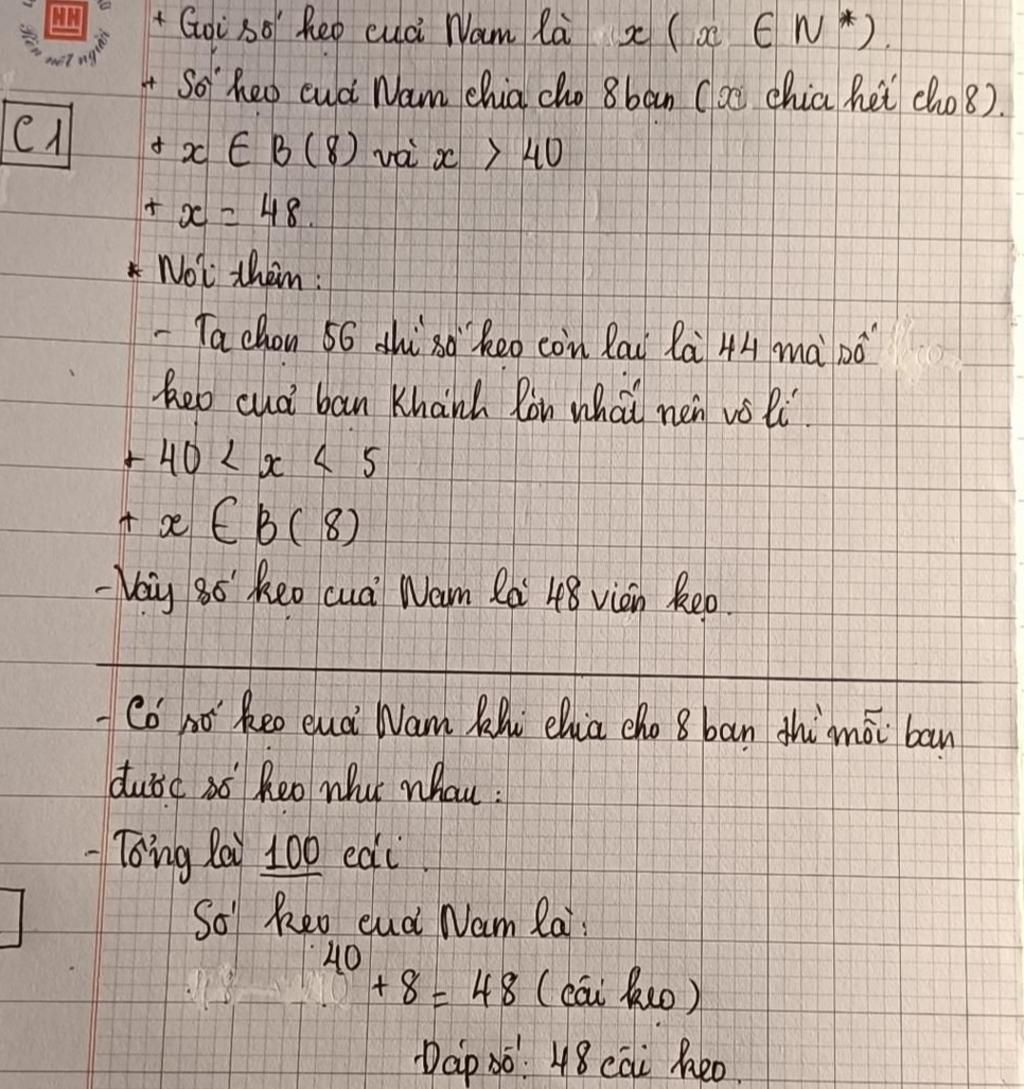 HH
+ Gọi số kẹo của Nam là x (x ∈ N*).
+ Số kẹo của Nam chia cho 8 bạn (x chia hết cho 8).
C1
+ x ∈ B(8) và x > 40
+ x = 48.
* Nói thêm:
- Ta chọn 56 thì số kẹo còn lại là 44 mà số
kẹo của bạn Khánh lớn nhất nên vô lí.
+ 40 < x < 5
+ x ∈ B(8)
- Vậy số kẹo của Nam là 48 viên kẹo.
- Có số kẹo của Nam khi chia cho 8 bạn thì mỗi bạn
được số kẹo như nhau:
- Tổng là 100 cái.
Số kẹo của Nam là:
40 + 8 = 48 (cái kẹo)
Đáp số: 48 cái kẹo.